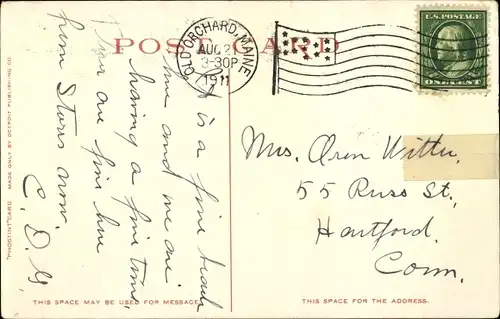 POST CARD
OLD ORCHARD, MAINE
AUG 2
3-30P
1911
U.S. POSTAGE
ONE CENT
It is a fine beach
and we are
having a fine time
are fine here
from now.
C. D. G.
Mrs. Oren Witter,
55 Russ St,
Hartford,
Conn.
"PHOSTINT" CARD. MADE ONLY BY DETROIT PUBLISHING CO.
THIS SPACE MAY BE USED FOR MESSAGE.
THIS SPACE IS FOR THE ADDRESS.